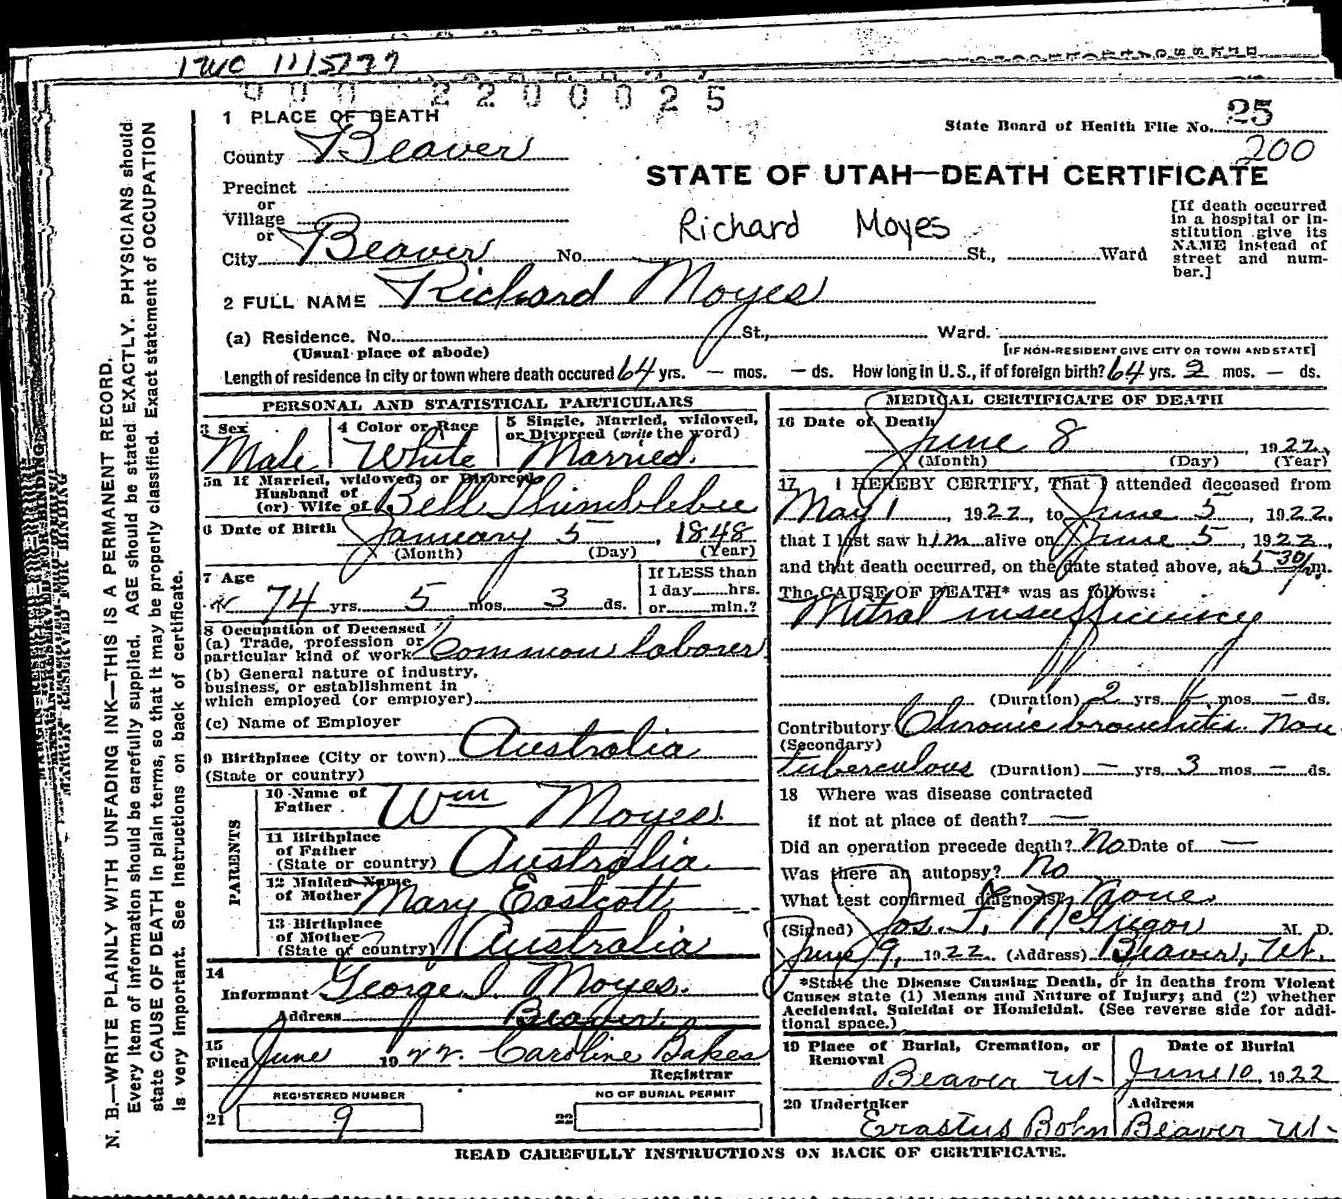 1WC 11/5777
900 2200025
1 PLACE OF DEATH
State Board of Health File No. 25
200
County Beaver
STATE OF UTAH—DEATH CERTIFICATE
Precinct
or
Village
or
City Beaver No. St., Ward
Richard Moyes
[If death occurred in a hospital or institution give its NAME instead of street and number.]
2 FULL NAME Richard Moyes
(a) Residence. No. St., Ward.
(Usual place of abode)
[IF NON-RESIDENT GIVE CITY OR TOWN AND STATE]
Length of residence in city or town where death occured 64 yrs. — mos. — ds. How long in U. S., if of foreign birth? 64 yrs. 2 mos. — ds.
PERSONAL AND STATISTICAL PARTICULARS
3 Sex
Male
4 Color or Race
White
5 Single, Married, widowed,
or Divorced (write the word)
Married.
5a If Married, widowed, or Divorced
Husband of
(or) Wife of Bell Thimblebee
6 Date of Birth January 5, 1848
(Month) (Day) (Year)
7 Age
74 yrs. 5 mos. 3 ds.
If LESS than
1 day hrs.
or min.?
8 Occupation of Deceased
(a) Trade, profession or
particular kind of work Common laborer
(b) General nature of industry,
business, or establishment in
which employed (or employer)
(c) Name of Employer
9 Birthplace (City or town) Australia
(State or country)
PARENTS
10 Name of
Father Wm Moyes.
11 Birthplace
of Father
(State or country) Australia
12 Maiden Name
of Mother Mary Eastcott
13 Birthplace
of Mother
(State or country) Australia
14
Informant George I Moyes.
Address Beaver.
15
Filed June 1922. Caroline Bakes
Registrar
REGISTERED NUMBER
21 9
NO OF BURIAL PERMIT
22
MEDICAL CERTIFICATE OF DEATH
16 Date of Death
June 8, 1922.
(Month) (Day) (Year)
17 I HEREBY CERTIFY, That I attended deceased from
May 1, 1922, to June 5, 1922,
that I last saw him alive on June 5, 1922,
and that death occurred, on the date stated above, at 5 30 p.m.
The CAUSE OF DEATH* was as follows:
Mitral insufficiency
(Duration) 2 yrs. — mos. — ds.
Contributory Chronic bronchitis. Non
(Secondary)
tuberculous (Duration) — yrs. 3 mos. — ds.
18 Where was disease contracted
if not at place of death? —
Did an operation precede death? No Date of —
Was there an autopsy? No
What test confirmed diagnosis? None.
(Signed) Jos. F. McGregor M. D.
June 9, 1922. (Address) Beaver, Ut.
*State the Disease Causing Death, or in deaths from Violent
Causes state (1) Means and Nature of Injury; and (2) whether
Accidental, Suicidal or Homicidal. (See reverse side for addi-
tional space.)
19 Place of Burial, Cremation, or
Removal
Beaver Ut-
Date of Burial
June 10, 1922
20 Undertaker
Erastus Bohn
Address
Beaver Ut-
READ CAREFULLY INSTRUCTIONS ON BACK OF CERTIFICATE.
MARGIN RESERVED FOR BINDING
N. B.—WRITE PLAINLY WITH UNFADING INK—THIS IS A PERMANENT RECORD.
Every item of information should be carefully supplied. AGE should be stated EXACTLY. PHYSICIANS should
state CAUSE OF DEATH in plain terms, so that it may be properly classified. Exact statement of OCCUPATION
is very important. See instructions on back of certificate.